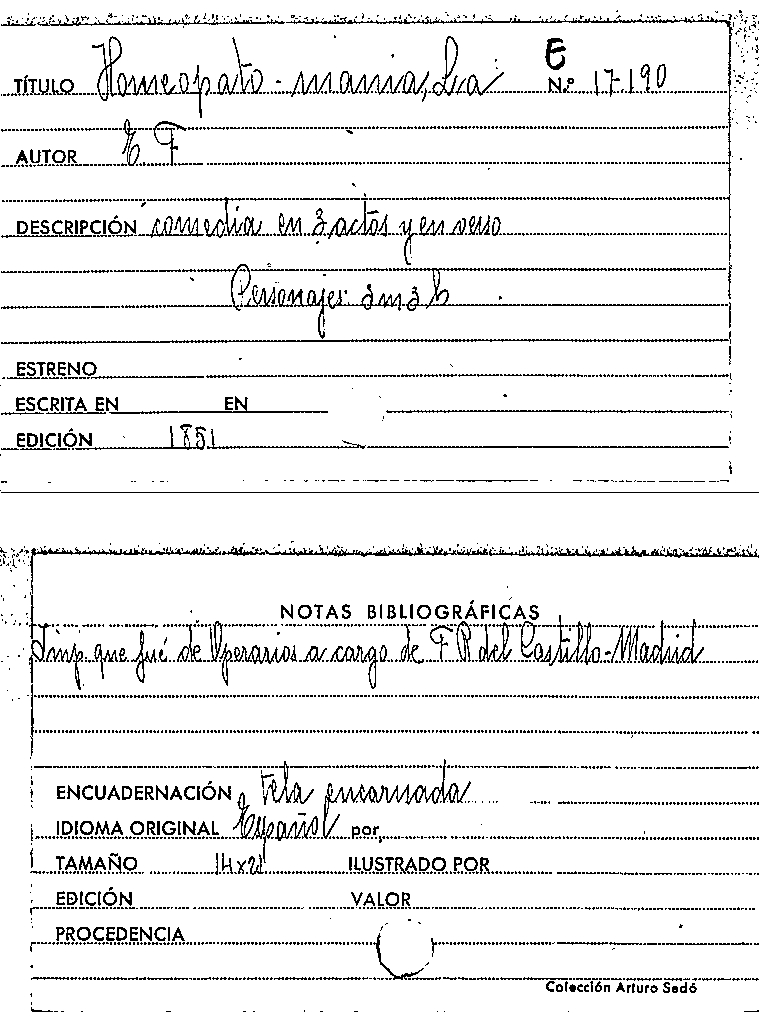 E
TÍTULO Homeopato-mania, La N.º 17.190
AUTOR E. F.
DESCRIPCIÓN comedia en 3 actos y en verso
Personajes: 3m 3h
ESTRENO
ESCRITA EN EN
EDICIÓN 1851
NOTAS BIBLIOGRÁFICAS
Imp. que fué de Operarios a cargo de F R del Castillo-Madrid
ENCUADERNACIÓN Tela encarnada
IDIOMA ORIGINAL Español por
TAMAÑO 14x21 ILUSTRADO POR
EDICIÓN VALOR
PROCEDENCIA
Colección Arturo Sedó